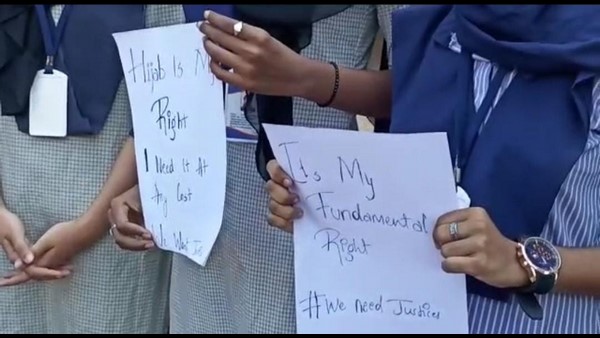 Hijab Is M
Right
I Need It At
Any Cost
We Want Jus
It's My
Fundamental
Right
#We need Justice